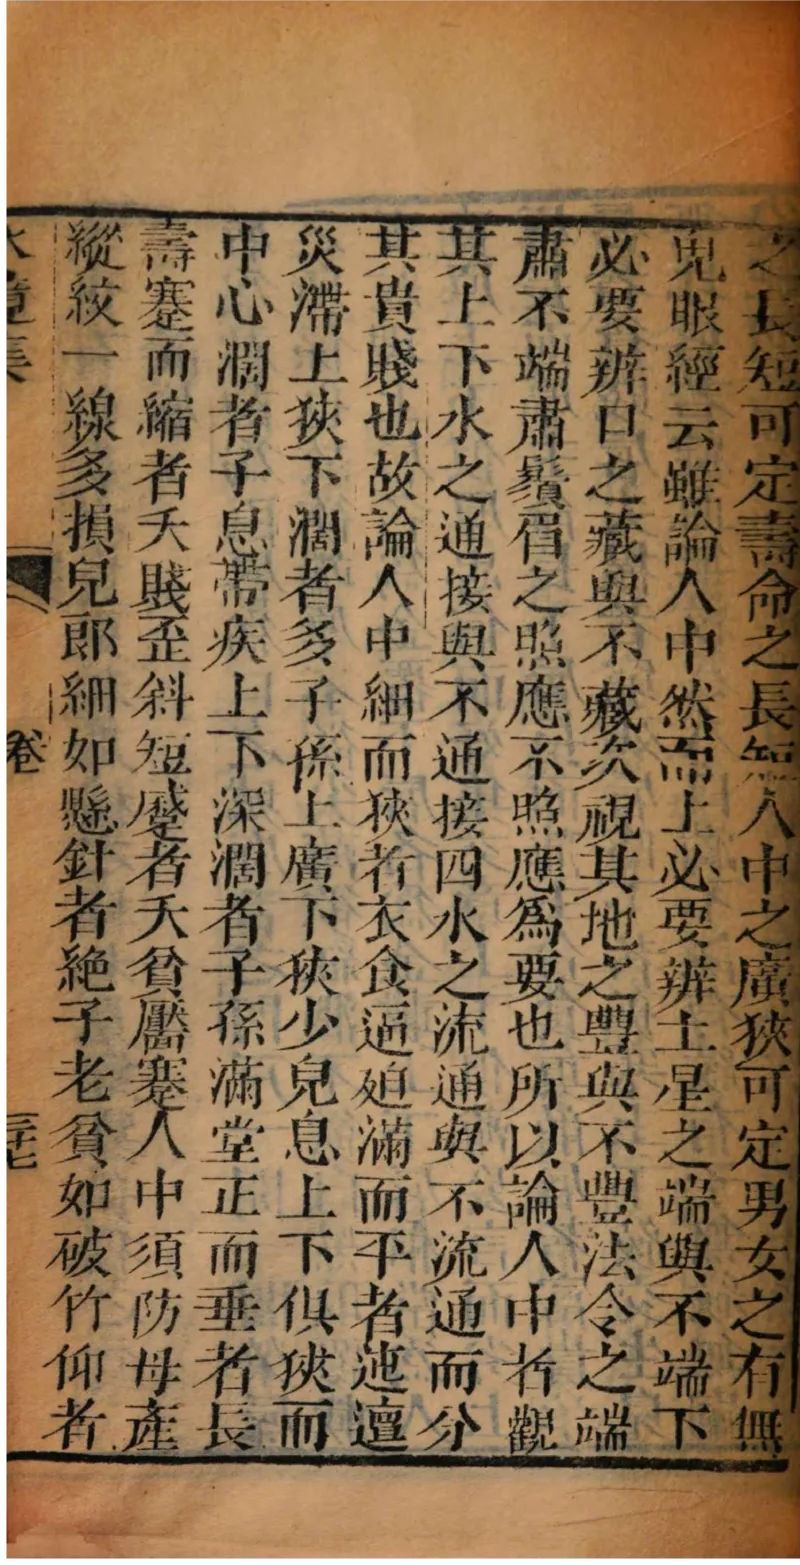 之長短可定壽命之長短人中之廣狹可定男女之有無
鬼眼經云雖論人中然而上必要辨土星之端與不端下
必要辨口之藏與不藏次視其地之豐與不豐法令之端
肅不端肅鬚眉之照應不照應為要也所以論人中者觀
其上下水之通接與不通接四水之流通與不流通而分
其貴賤也故論人中細而狹者衣食逼廹滿而平者迍邅
災滯上狹下濶者多子孫上廣下狹少兒息上下俱狹而
中心濶者子息帶疾上下深濶者子孫滿堂正而垂者長
壽蹇而縮者夭賤歪斜短蹙者夭貧黶蹇人中須防母產
縱紋一線多損兒郎細如懸針者絶子老貧如破竹仰者
水鏡集
卷
三十七